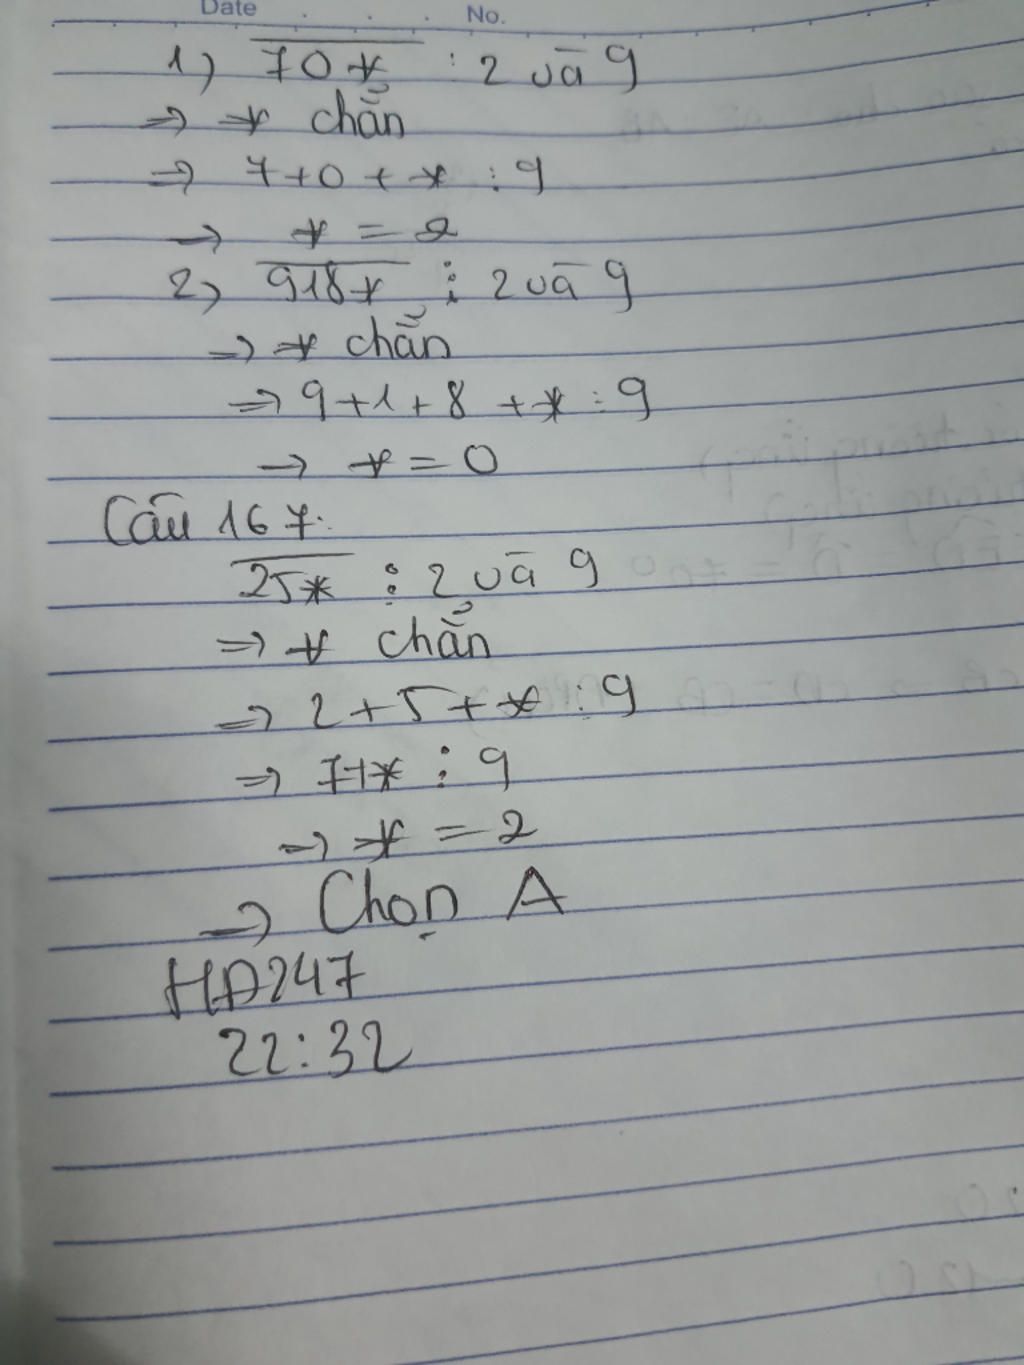 Date No.
1) 70* : 2 và 9
=> * chẵn
=> 7+0+* : 9
-> * = 2
2) 918* ⋮ 2 và 9
=> * chẵn
=> 9+1+8+* : 9
-> * = 0
Câu 167:
25* ⋮ 2 và 9
=> * chẵn
=> 2+5+* : 9
=> 7+* ⋮ 9
-> * = 2
-> Chọn A
HD247
22:32